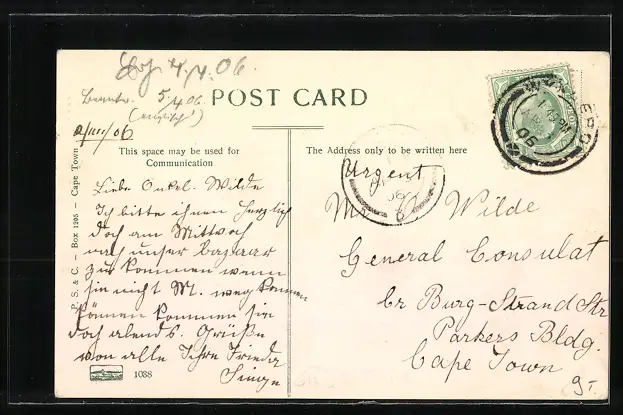 4.4.06.
Beantw. 5/4 06
(englisch)
POST CARD
2/IIII/06
This space may be used for
Communication
The Address only to be written here
P. S. & C. – Box 1205 – Cape Town
Liebe Onkel. Wilde
Ich bitte ihnen herzlich
doch am Mittwoch
nach unser bazaar
zu kommen wenn
sie nicht M. weg kommen
können kommen sie
doch abends. Grüße
von alle Ihre Frieda
Urgent
Mr Wilde
General Consulat
Cr Burg-Strand Str
Parkers Bldg.
Cape Town
1038
9-
06